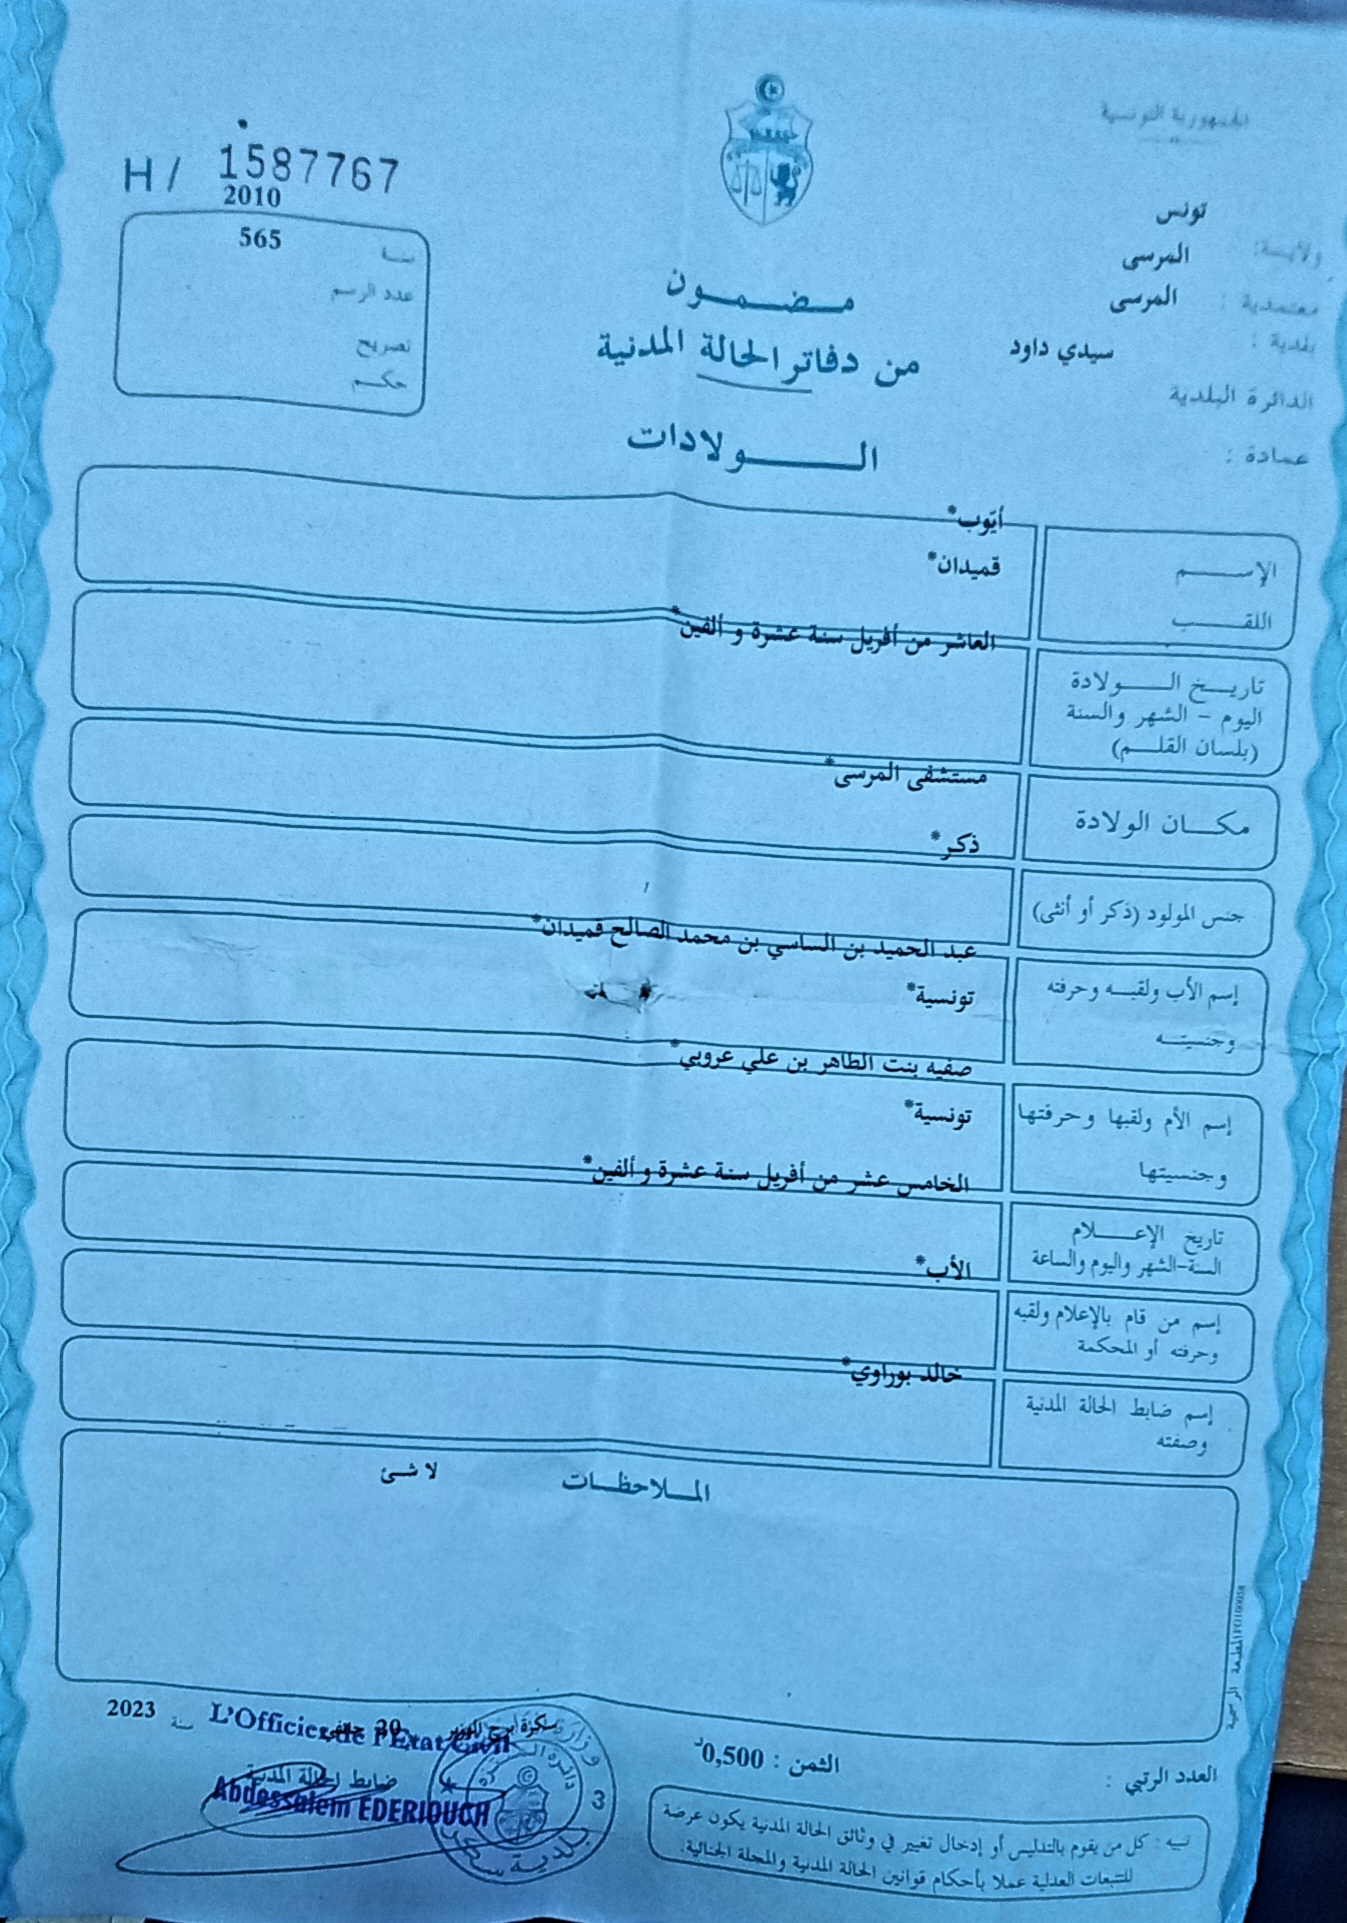 الجمهورية التونسية
H / 1587767
2010
565
سنة
عدد الرسم
تصريح
حكم
تونس
ولاية:
المرسى
معتمدية :
المرسى
بلدية :
سيدي داود
الدائرة البلدية
عمادة :
مضمون
من دفاتر الحالة المدنية
الولادات
أيّوب*
الإسم
قميدان*
اللقب
العاشر من أفريل سنة عشرة و ألفين*
تاريخ الولادة
اليوم - الشهر والسنة
(بلسان القلم)
مستشفى المرسى*
مكان الولادة
ذكر*
جنس المولود (ذكر أو أنثى)
عبد الحميد بن الساسي بن محمد الصالح قميدان*
إسم الأب ولقبه وحرفته
تونسية*
وجنسيته
صفيه بنت الطاهر بن علي عروبي*
إسم الأم ولقبها وحرفتها
تونسية*
وجنسيتها
الخامس عشر من أفريل سنة عشرة و ألفين*
تاريخ الإعلام
السنة-الشهر واليوم والساعة
الأب*
إسم من قام بالإعلام ولقبه
وحرفته أو المحكمة
خالد بوراوي*
إسم ضابط الحالة المدنية
وصفته
الملاحظات
لا شئ
المطبعة الرسمية
سكرة برج الوزير
20 جانفي
سنة
2023
L'Officier de l'Etat Civil
ضابط الحالة المدنية
Abdessalem EDERIOUCH
3
العدد الرتبي :
الثمن : 0,500د
تنبيه : كل من يقوم بالتدليس أو إدخال تغيير في وثائق الحالة المدنية يكون عرضة
للتتبعات العدلية عملا بأحكام قوانين الحالة المدنية والمجلة الجنائية.